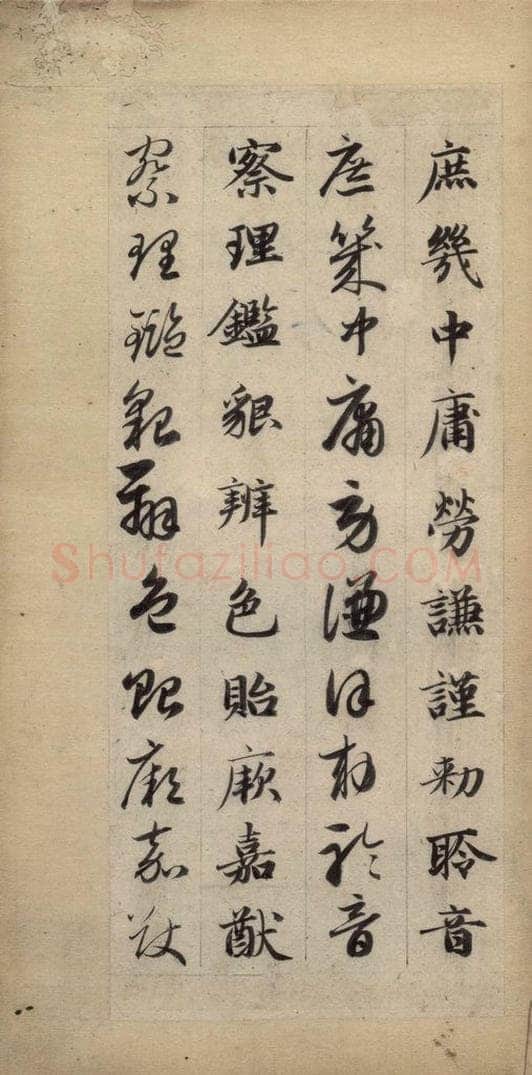 庶幾中庸勞謙謹勅聆音
庶幾中庸勞謙謹勅聆音
察理鑑貌辨色貽厥嘉猷
察理鑑貌辨色貽厥嘉猷
Shufaziliao.COM